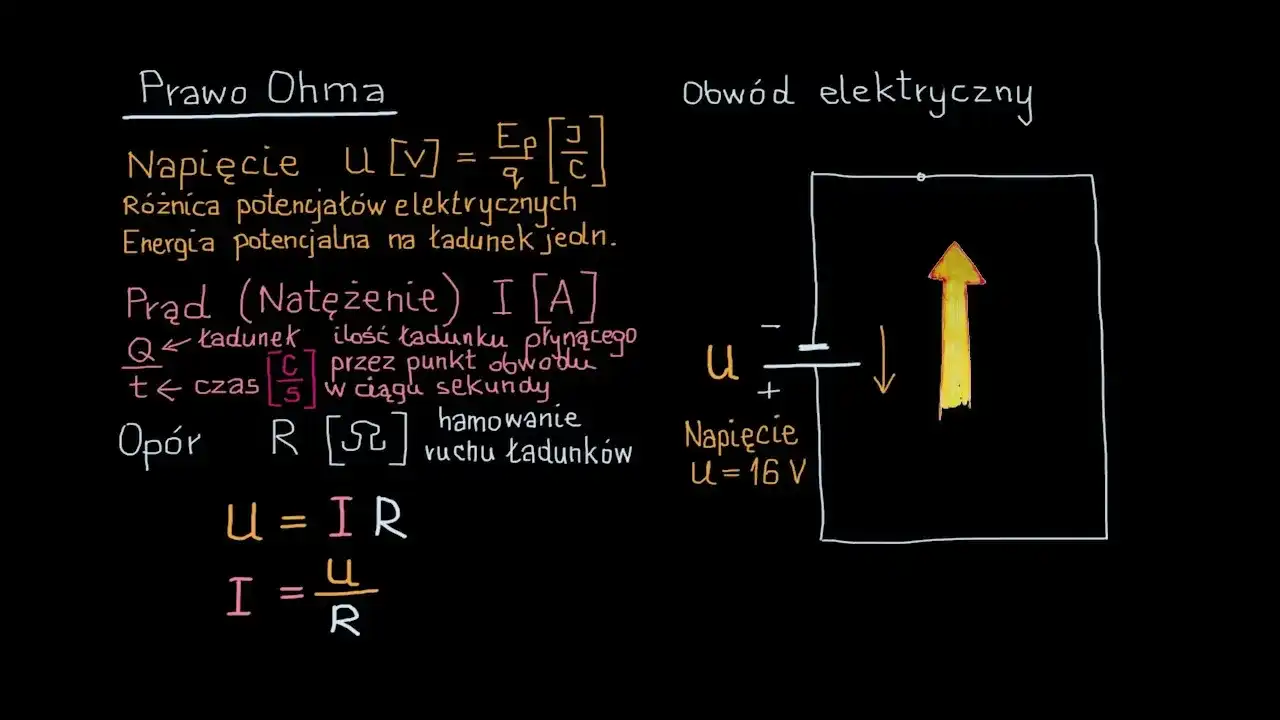 Prawo Ohma
Napięcie U [V] = Ep/q [J/C]
Różnica potencjałów elektrycznych
Energia potencjalna na ładunek jedn.
Prąd (Natężenie) I [A]
Q/t ← ładunek ← czas [C/s]
ilość ładunku płynącego
przez punkt obwodu
w ciągu sekundy
Opór R [Ω]
hamowanie
ruchu ładunków
U = I R
I = U/R
Obwód elektryczny
−
U
+
Napięcie
U = 16 V